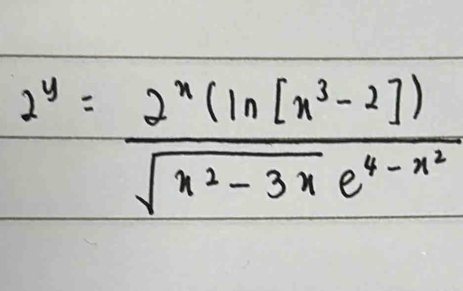 2^y = \frac{2^x (ln [x^3 - 2])}{\sqrt{x^2 - 3x} e^{4 - x^2}}